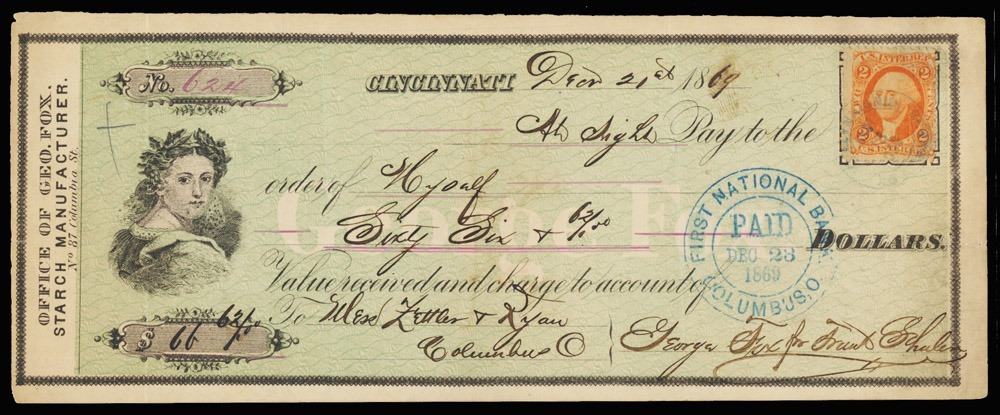 OFFICE OF GEO. FOX.
STARCH MANUFACTURER.
No 87 Columbia St.
No. 624
CINCINNATI Decr 21st 1869
U.S. INTER. REV.
2 2
U.S. INTER. REV.
At Sight Pay to the
order of Myself
George Fox
Sixty Six & 62/00 DOLLARS.
FIRST NATIONAL BANK
PAID
DEC 23
1869
COLUMBUS, O.
Value received and charge to account of
$ 66 62/00
To Mess Zettler & Ryan
Columbus O
George Fox for Frank